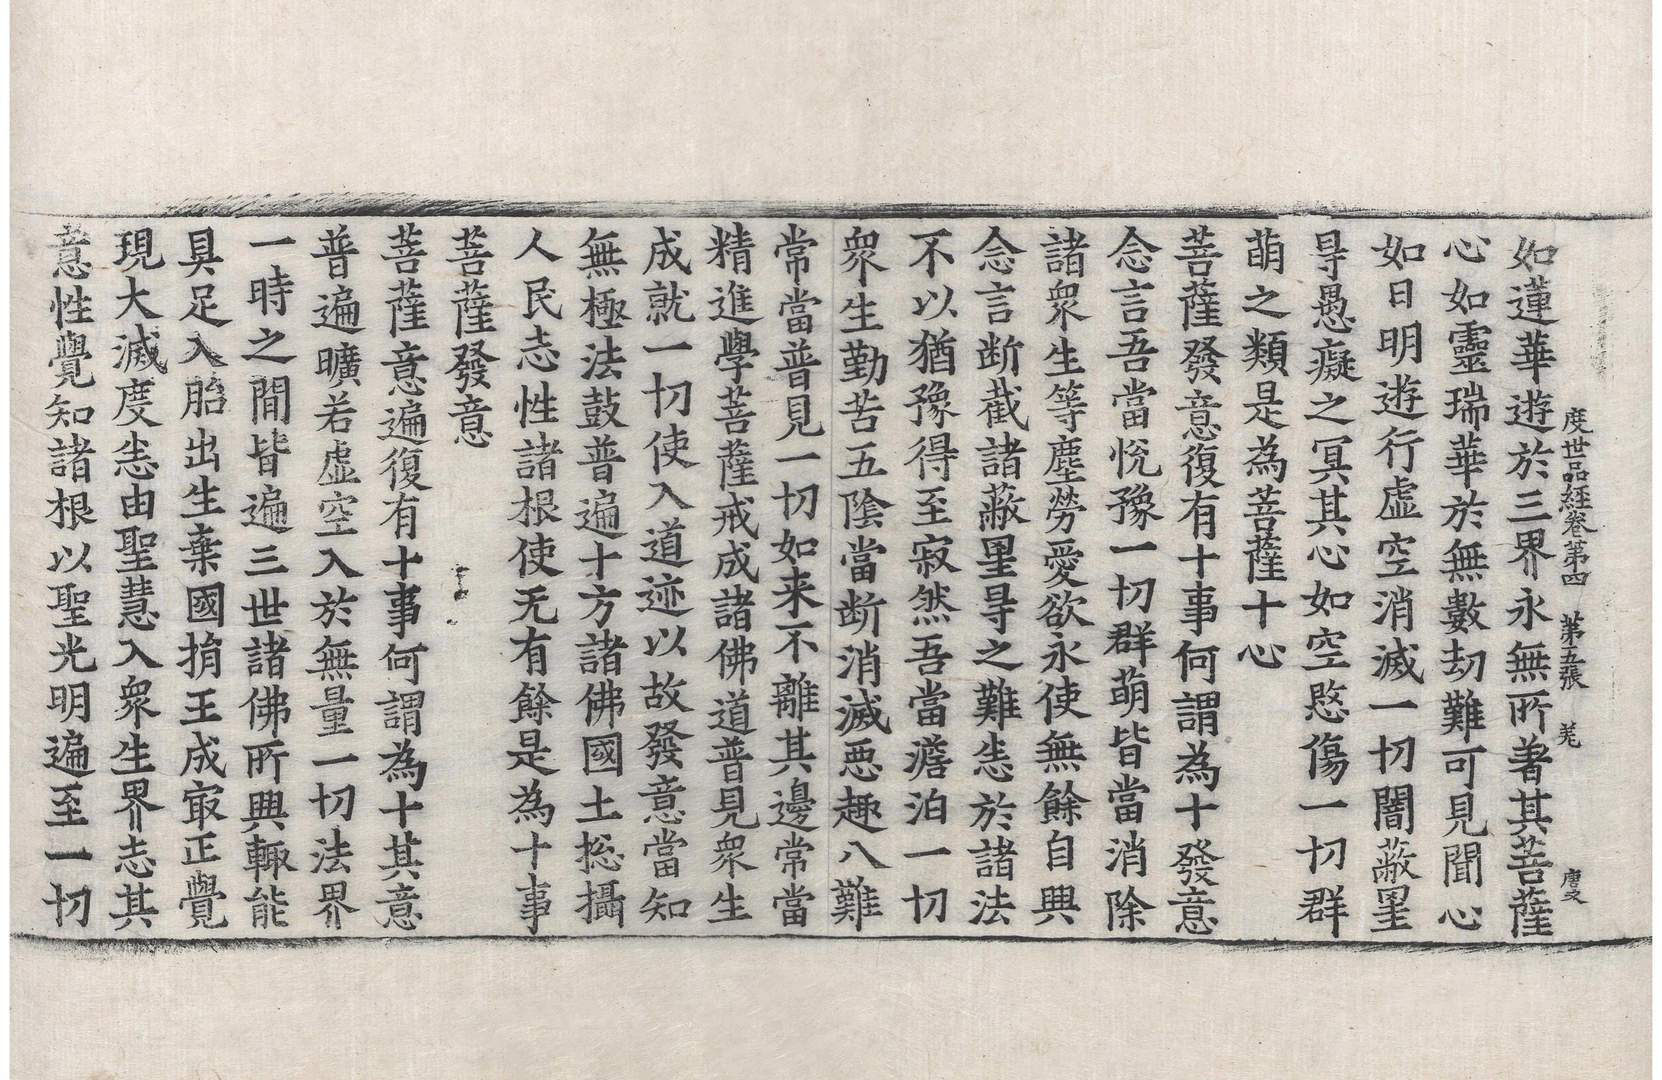 度世品経卷第四 第五張 羌 唐文
如蓮華遊於三界永無所著其菩薩
心如靈瑞華於無數劫難可見聞心
如日明遊行虛空消滅一切闇蔽罣
㝵愚癡之冥其心如空愍傷一切群
萌之類是為菩薩十心
菩薩發意復有十事何謂為十發意
念言吾當悅豫一切群萌皆當消除
諸衆生等塵勞愛欲永使無餘自興
念言断截諸蔽罣㝵之難恚於諸法
不以猶豫得至寂然吾當澹泊一切
衆生勤苦五陰當断消滅悪趣八難
常當普見一切如来不離其邊常當
精進學菩薩戒成諸佛道普見衆生
成就一切使入道迹以故發意當知
無極法鼓普遍十方諸佛國土捴攝
人民志性諸根使无有餘是為十事
菩薩發意
菩薩意遍復有十事何謂為十其意
普遍曠若虛空入於無量一切法界
一時之間皆遍三世諸佛所興輙能
具足入胎出生棄國捐王成㝡正覺
現大滅度恚由聖慧入衆生界志其
意性覺知諸根以聖光明遍至一切